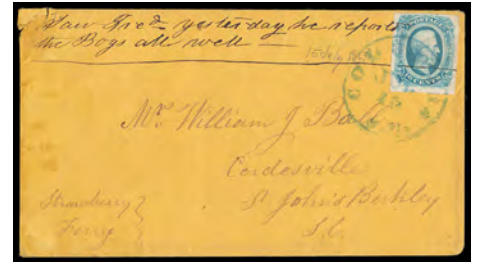 Saw Fred yesterday he reports
the Boys all well —
15 July 1863
COLUMBIA
Mr. William J Ball
Cordesville
St Johns Berkley
S.C.
Strawberry
Ferry